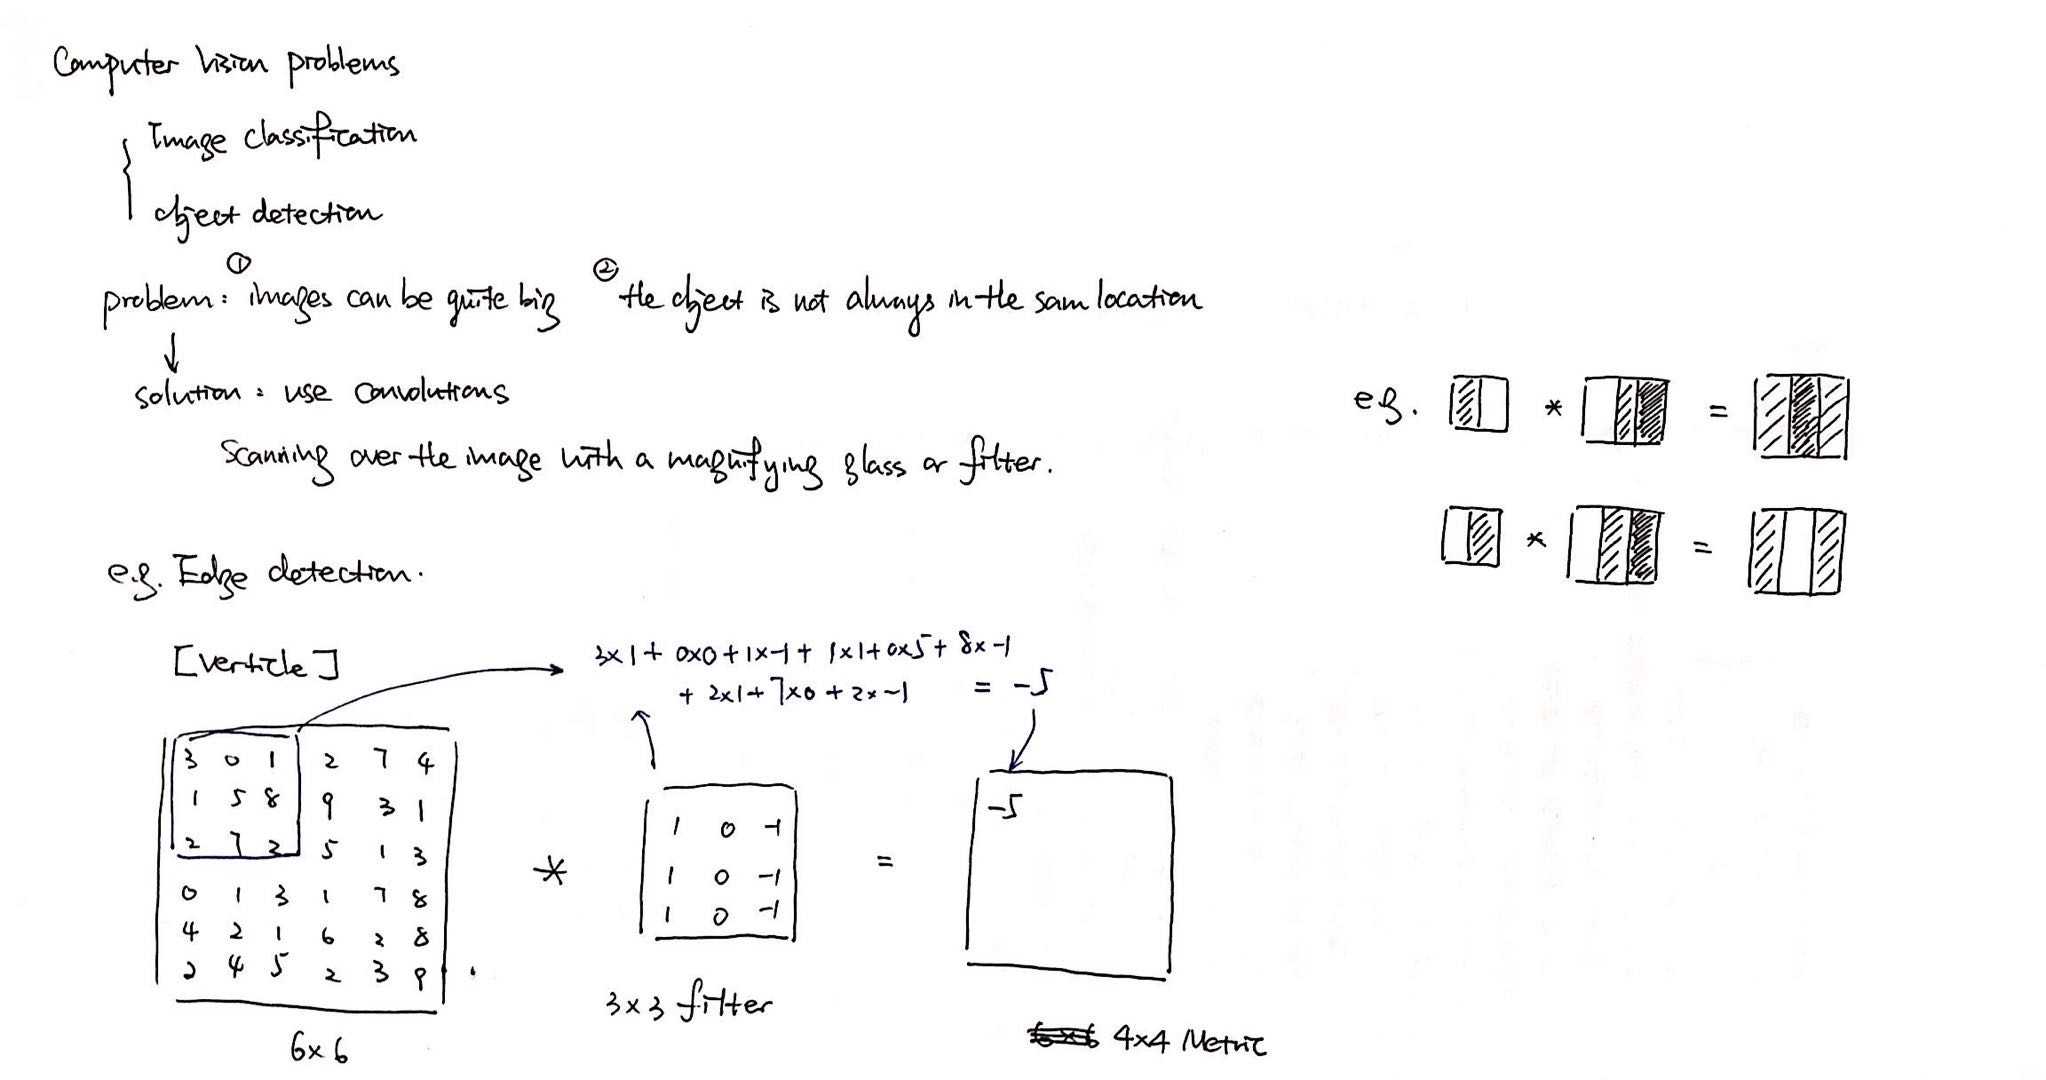 Computer vision problems
Image classification
object detection
problem: ① images can be quite big ② the object is not always in the sam location
↓
solution: use convolutions
Scanning over the image with a magnifying glass or filter.
e.g. * =
* =
e.g. Edge detection.
[verticle]
3x1 + 0x0 + 1x-1 + 1x1 + 0x5 + 8x-1
+ 2x1 + 7x0 + 2x-1 = -5
3 0 1 2 7 4
1 5 8 9 3 1
2 7 2 5 1 3
0 1 3 1 7 8
4 2 1 6 2 8
2 4 5 2 3 9
6x6
*
1 0 -1
1 0 -1
1 0 -1
3x3 filter
=
-5
4x4 Metric